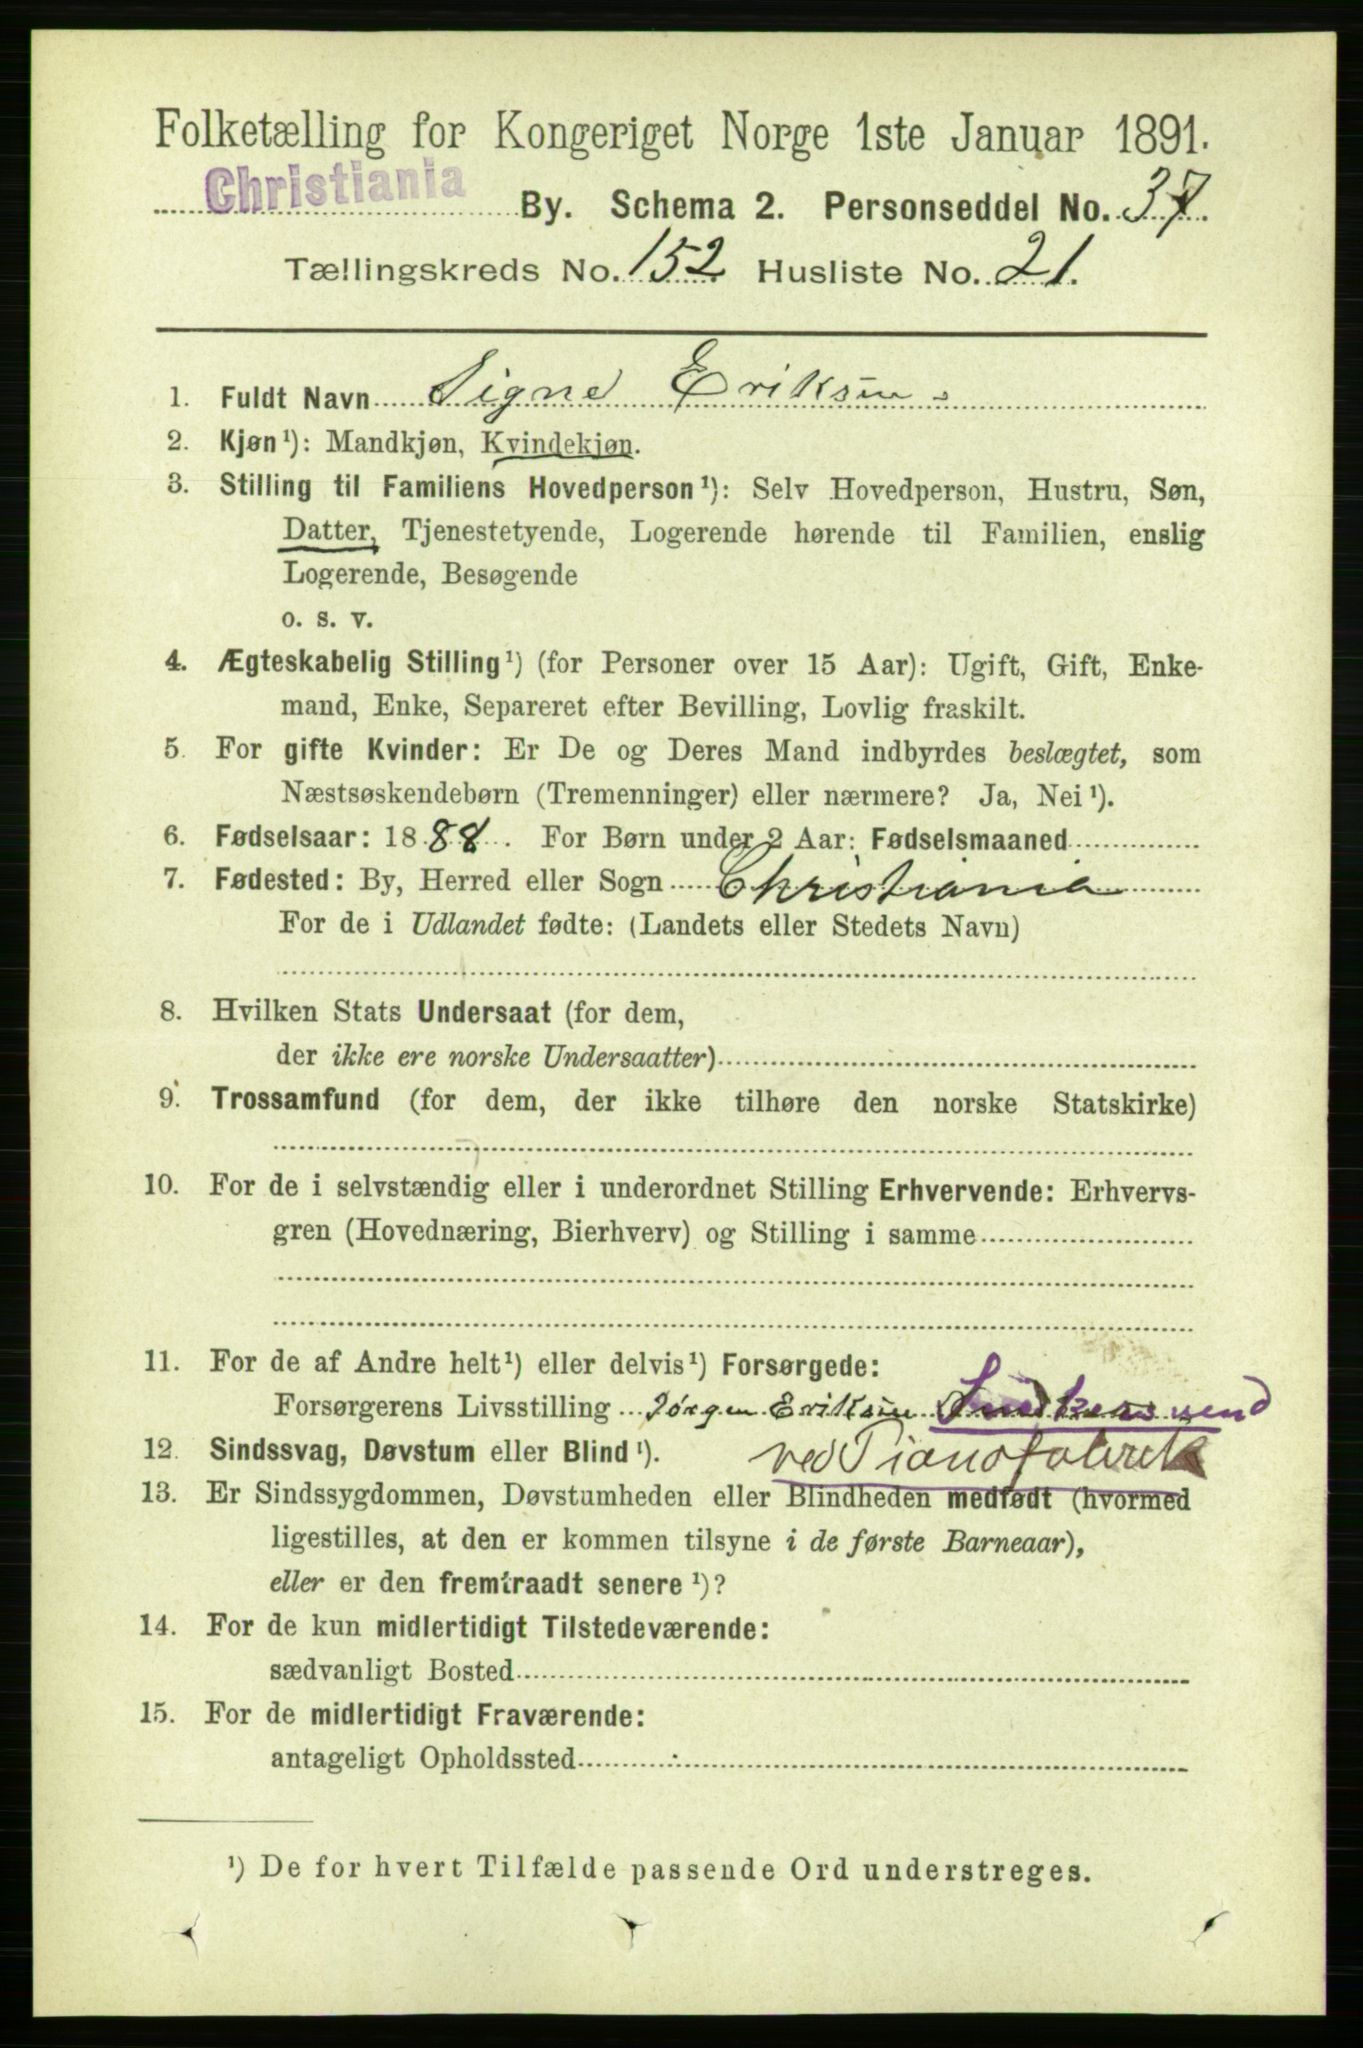 Folketælling for Kongeriget Norge 1ste Januar 1891.
Christiania By. Schema 2. Personseddel No. 37.
Tællingskreds No. 152 Husliste No. 21.
1. Fuldt Navn Signe Eriksen
2. Kjøn¹): Mandkjøn, Kvindekjøn.
3. Stilling til Familiens Hovedperson¹): Selv Hovedperson, Hustru, Søn,
Datter, Tjenestetyende, Logerende hørende til Familien, enslig
Logerende, Besøgende
o. s. v.
4. Ægteskabelig Stilling¹) (for Personer over 15 Aar): Ugift, Gift, Enke-
mand, Enke, Separeret efter Bevilling, Lovlig fraskilt.
5. For gifte Kvinder: Er De og Deres Mand indbyrdes beslægtet, som
Næstsøskendebørn (Tremenninger) eller nærmere? Ja, Nei¹).
6. Fødselsaar: 1888. For Børn under 2 Aar: Fødselsmaaned
7. Fødested: By, Herred eller Sogn Christiania
For de i Udlandet fødte: (Landets eller Stedets Navn)
8. Hvilken Stats Undersaat (for dem,
der ikke ere norske Undersaatter)
9. Trossamfund (for dem, der ikke tilhøre den norske Statskirke)
10. For de i selvstændig eller i underordnet Stilling Erhvervende: Erhvervs-
gren (Hovednæring, Bierhverv) og Stilling i samme
11. For de af Andre helt¹) eller delvis¹) Forsørgede:
Forsørgerens Livsstilling Jørgen Eriksen Snedkersvend
12. Sindssvag, Døvstum eller Blind¹). ved Pianofabrik
13. Er Sindssygdommen, Døvstumheden eller Blindheden medfødt (hvormed
ligestilles, at den er kommen tilsyne i de første Barneaar),
eller er den fremtraadt senere¹)?
14. For de kun midlertidigt Tilstedeværende:
sædvanligt Bosted
15. For de midlertidigt Fraværende:
antageligt Opholdssted
¹) De for hvert Tilfælde passende Ord understreges.